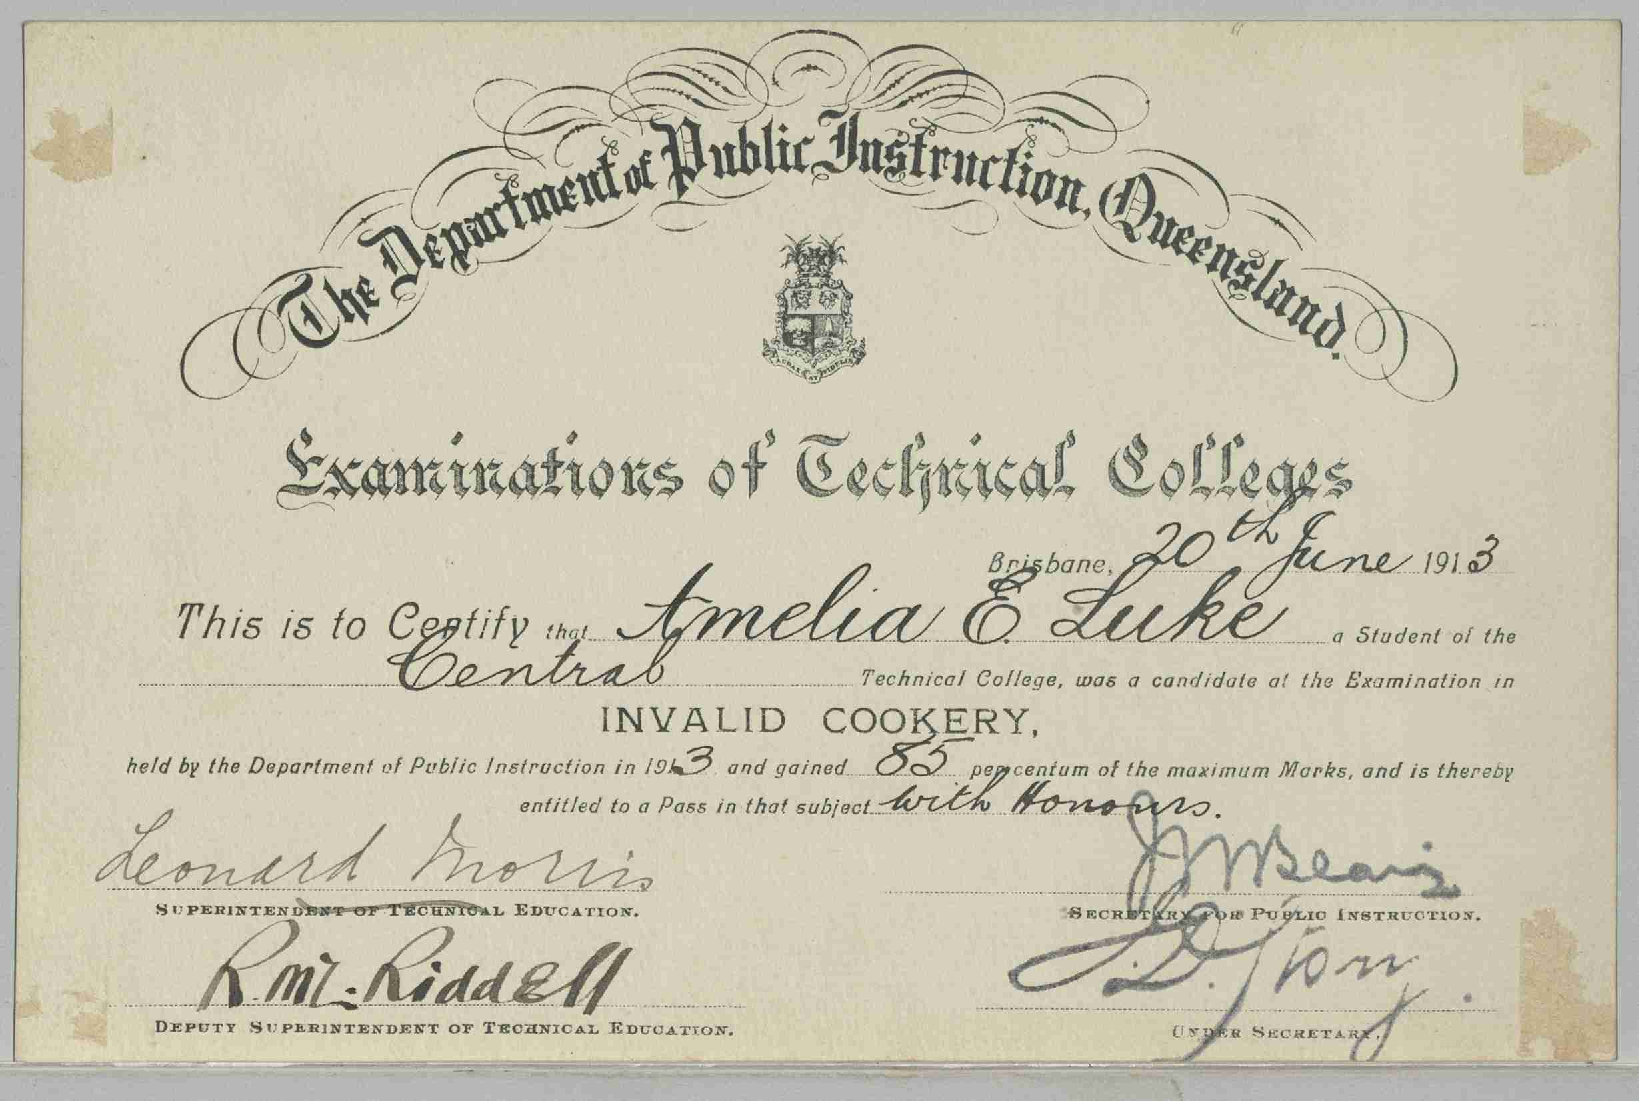 The Department of Public Instruction, Queensland.
Examinations of Technical Colleges
Brisbane, 20th June 1913
This is to Certify that Amelia E. Luke a Student of the
Central Technical College, was a candidate at the Examination in
INVALID COOKERY,
held by the Department of Public Instruction in 1913 and gained 85 per centum of the maximum Marks, and is thereby
entitled to a Pass in that subject with Honours.
Leonard Morris
SUPERINTENDENT OF TECHNICAL EDUCATION.
SECRETARY FOR PUBLIC INSTRUCTION.
R. McL. Riddell
J.D. Story.
DEPUTY SUPERINTENDENT OF TECHNICAL EDUCATION.
UNDER SECRETARY.